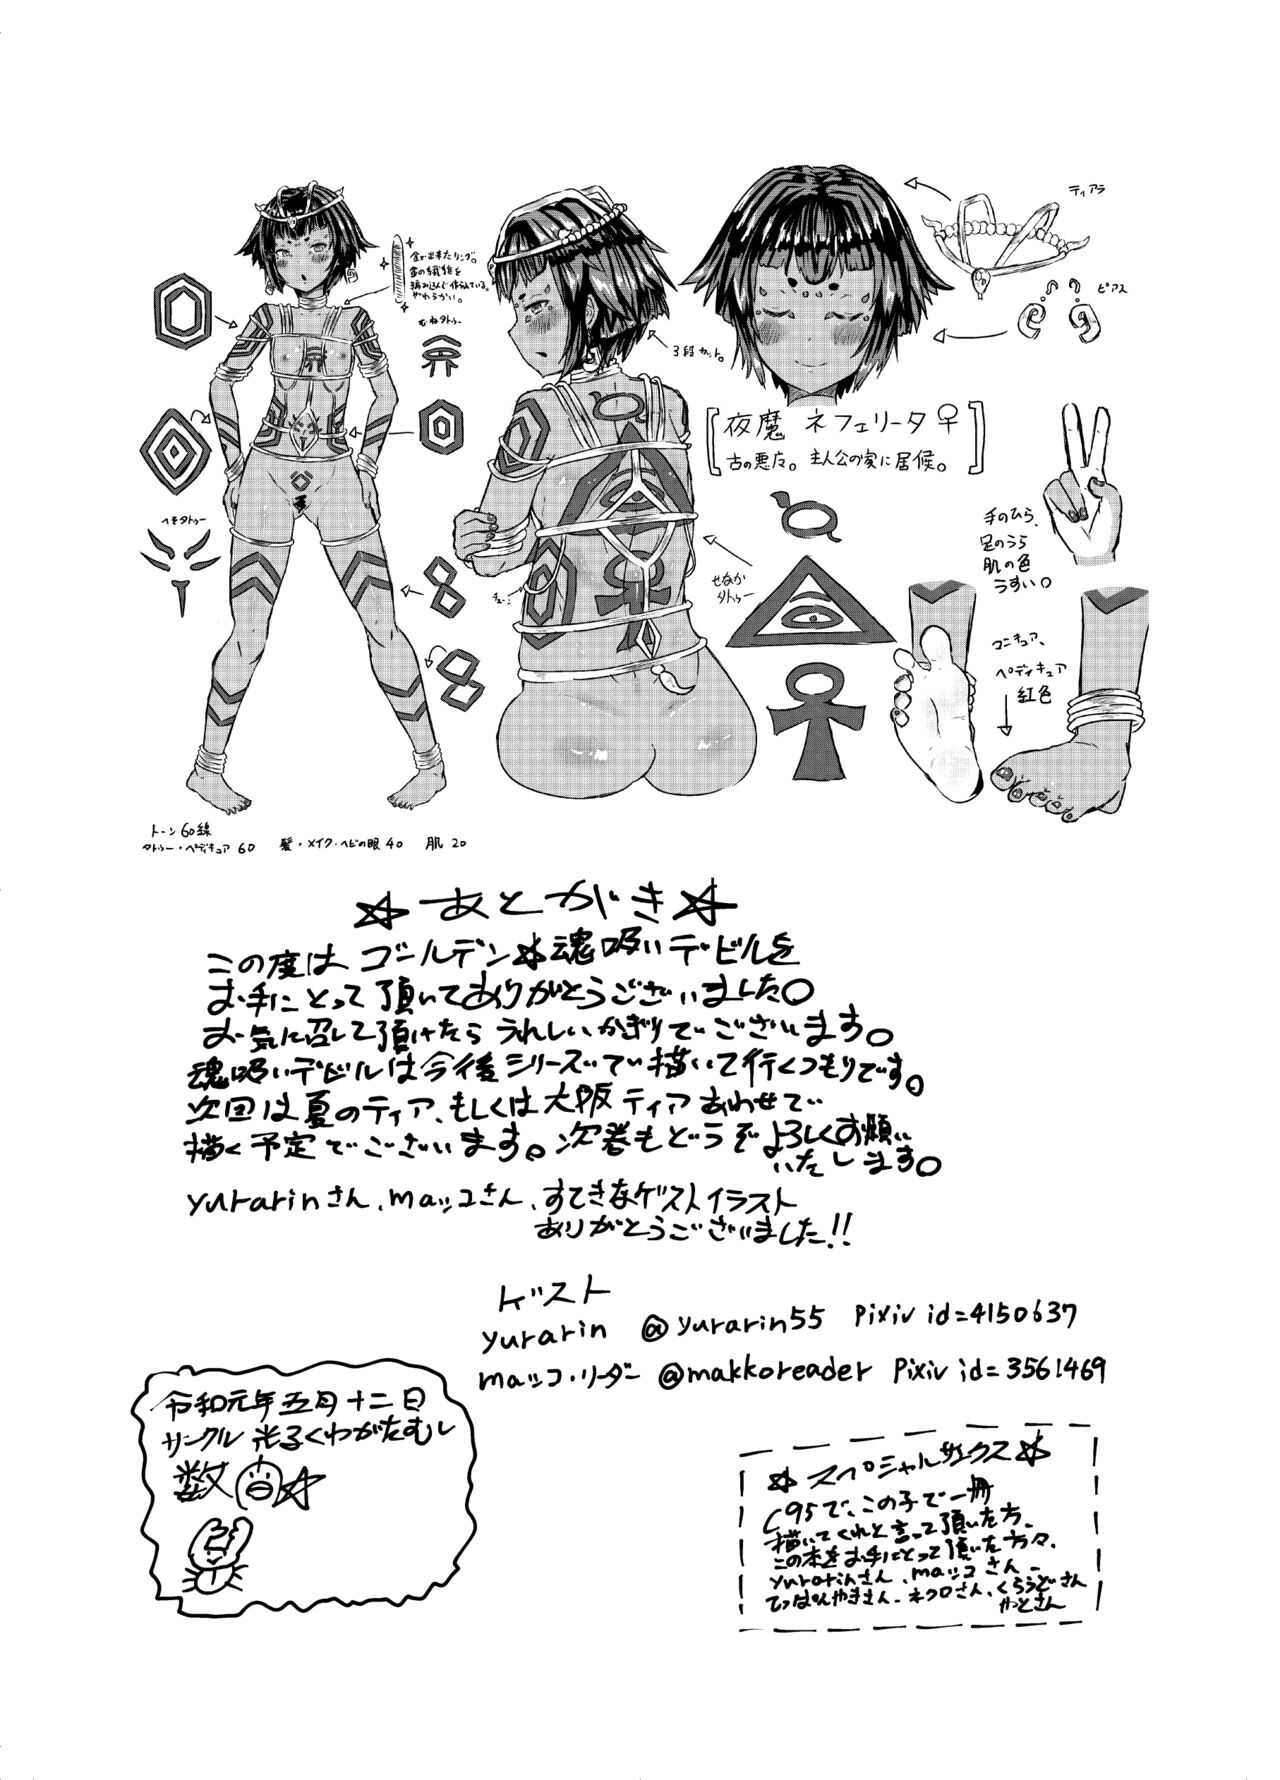 ティアラ
金で出来たリング。
蛇の鱗粉を
編み込んで作られている。
やわらかい。
むねタトゥー
ピアス
3段カット。
夜魔 ネフェリータ♀
古の悪魔。主人公の家に居候。
ヘそタトゥー
手のひら、
足のうら
肌の色
うすい。
せなか
タトゥー
マニキュア、
ペディキュア
紅色
トーン60線
タトゥー・ペディキュア 60 髪・メイク・ヘビの眼 40 肌 20
☆あとがき☆
この度はゴールデン☆魂吸いデビルを
お手にとって頂いてありがとうございました。
お気に召して頂けたらうれしいかぎりでございます。
魂吸いデビルは今後シリーズで描いて行くつもりです。
次回は夏のティア、もしくは大阪ティアあわせで
描く予定でございます。次巻もどうぞよろしくお願い
いたします。
yurarinさん、maッコさん、すてきなゲストイラスト
ありがとうございました!!
ゲスト
yurarin @yurarin55 Pixiv id=4150637
maッコ・リーダー @makkoreader Pixiv id=3561469
令和元年五月十二日
サークル 光子くわがたむし
数
☆スペシャルサンクス☆
C95で、この子で一冊
描いてくれと言って頂いた方、
この本をお手にとって頂いた方々、
yurarinさん、maッコさん、
てっぱんやきさん、ネクロさん、くろうどさん
やとさん